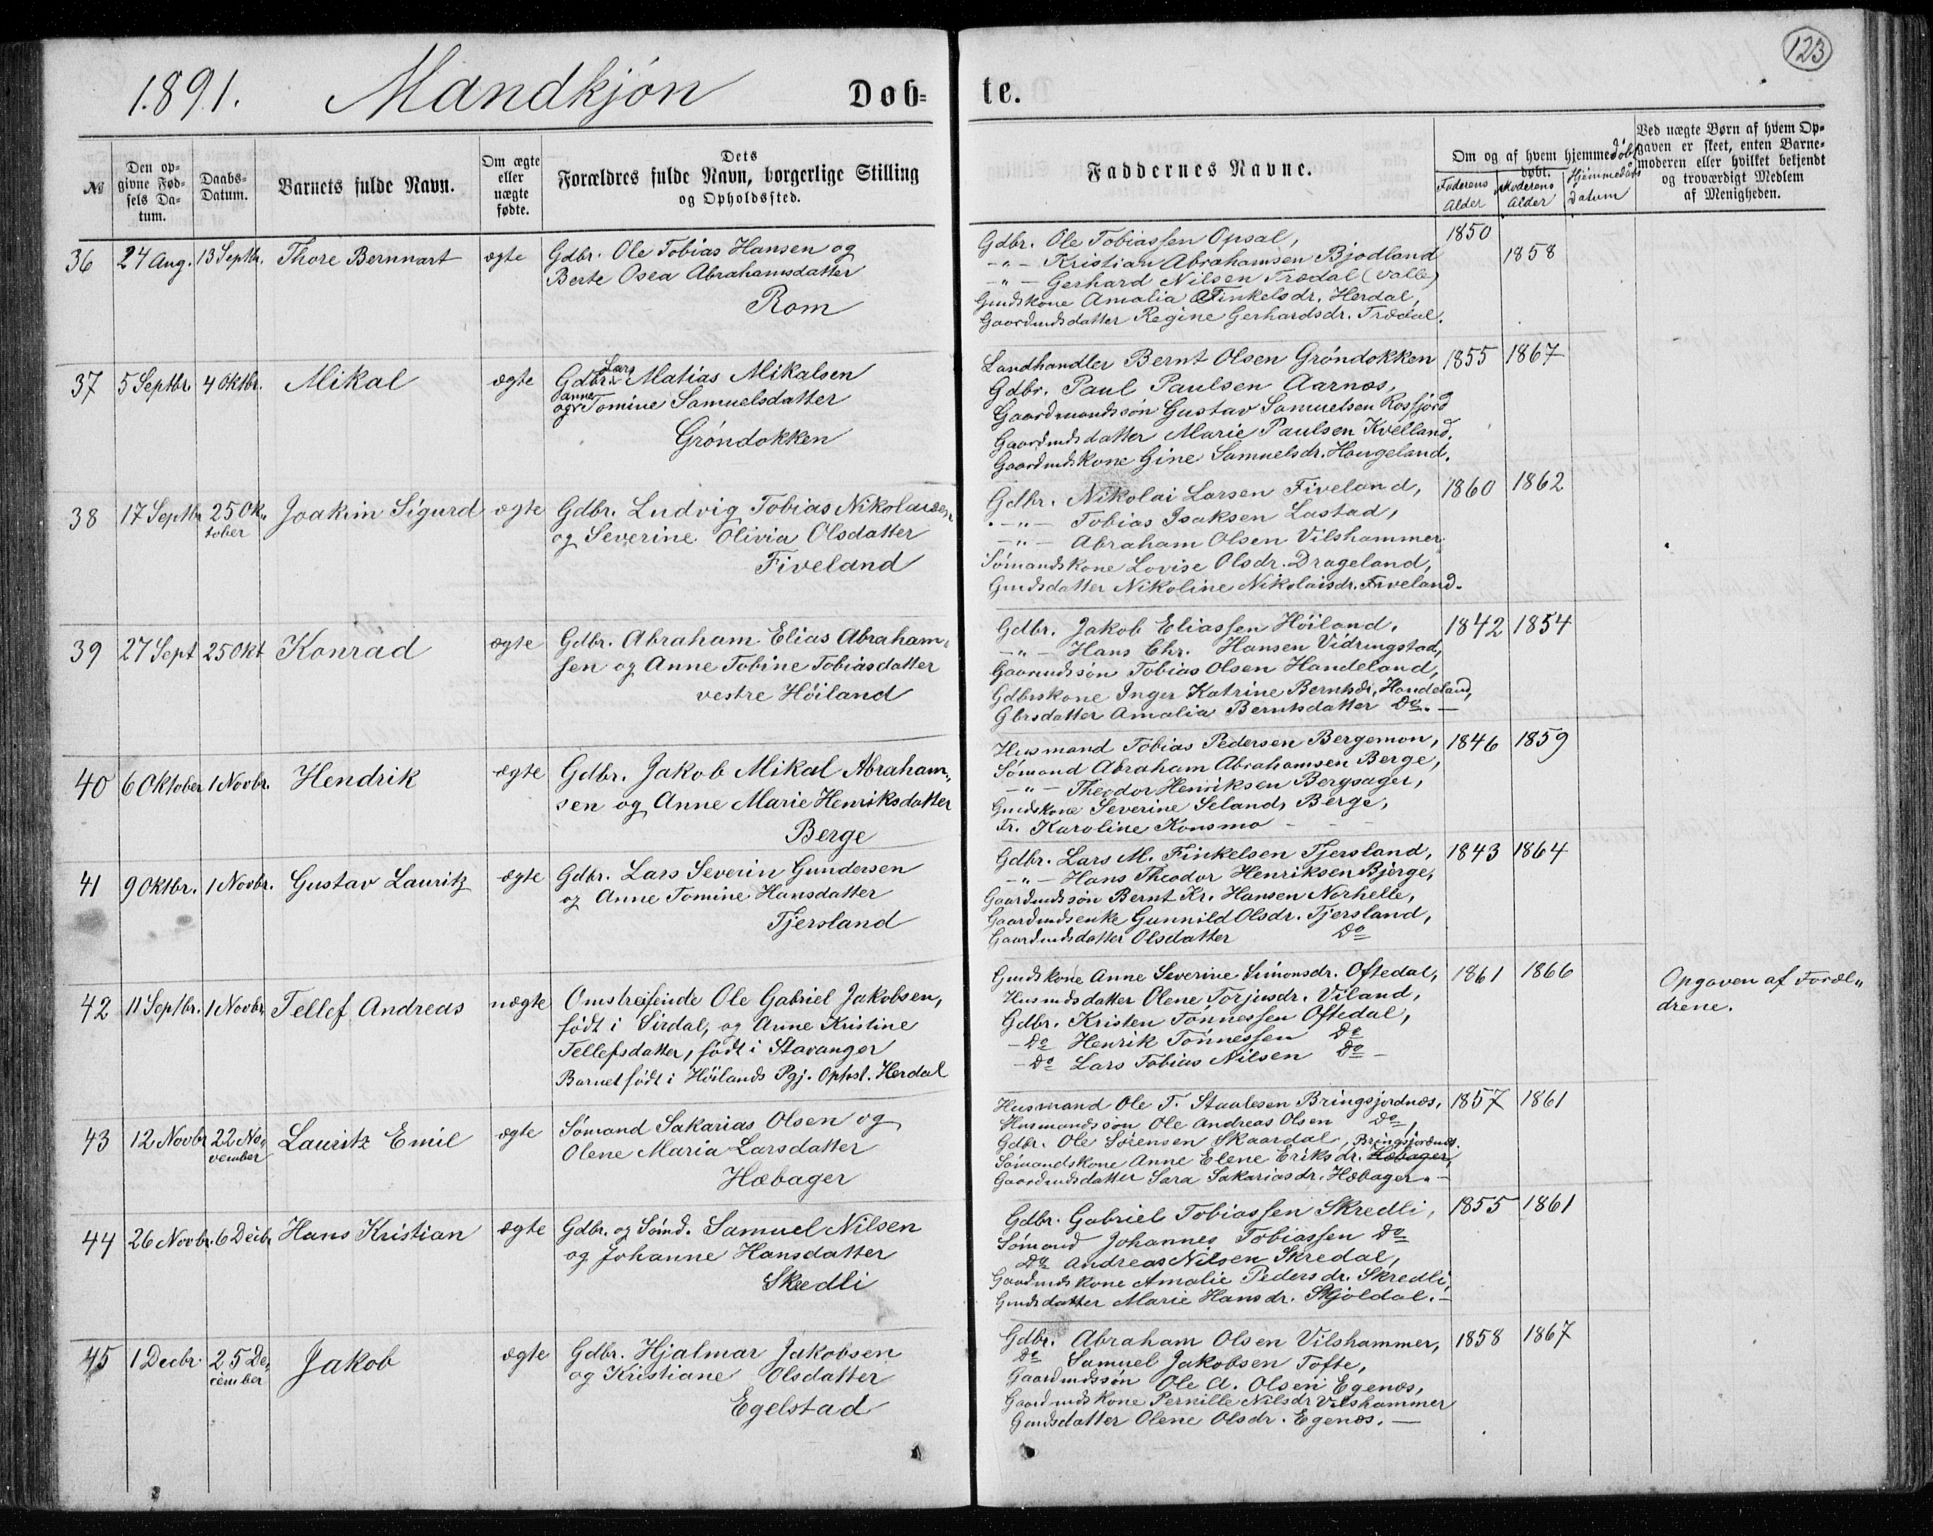 1891. Mandkjön Døb= te. 123
No
Den op-
givne Fød-
sels Da-
tum.
Daabs-
Datum.
Barnets fulde Navn.
Om ægte
eller
nægte
fødte.
Dets
Forældres fulde Navn, borgerlige Stilling
og Opholdssted.
Faddernes Navne.
Om og af hvem hjemmedöbt
døbt.
Faderens
Alder
Moderens
Alder
Hjemmedaabs
Datum
Ved uægte Børn af hvem Op-
gaven er skeet, enten Barne-
moderen eller hvilket bekjendt
og troværdigt Medlem
af Menigheden.
36 24 Aug. 13 Septbr. Thore Bernnart ægte
Gdbr. Ole Tobias Hansen og
Berte Osea Abrahamsdatter
Rom
Gdbr. Ole Tobiassen Opsal,
-"- Kristian Abrahamsen Bjodland
-"- Gerhard Nilsen Trædal (Valle)
Gmdskone Amalia Finkelsdr. Herdal,
Gaardmdsdatter Regine Gerhardsdr. Trædal.
1850 1858
37 5 Septbr. 4 Oktbr. Mikal ægte
Gdbr. Lars Matias Mikalsen
og Anne Tomine Samuelsdatter
Gröndokken
Landhandler Bernt Olsen Gröndokken
Gdbr. Paul Paulsen Aarnæs,
Gaardmandssön Gustav Samuelsen Rosfjord
Gaardmdsdatter Marie Paulsen Kvelland,
Gaardmdskone Gine Samuelsdr. Haugeland.
1855 1867
38 17 Septbr 25 Ok-
tober Joakim Sigurd ægte
Gdbr. Ludvig Tobias Nikolaisen
og Severine Olivia Olsdatter
Fiveland
Gdbr. Nikolai Larsen Fiveland,
-"- Tobias Isaksen Lastad,
-"- Abraham Olsen Vilshammer
Sömandskone Lovise Olsdr. Drageland,
Gmdsdatter Nikoline Nikolaisdr. Fiveland.
1860 1862
39 27 Sept 25 Okt Konrad ægte
Gdbr. Abraham Elias Abraham-
sen og Anne Tobine Tobiasdatter
vestre Höiland
Gdbr. Jakob Eliassen Höiland,
-"- Hans Chr. Hansen Vidringstad,
Gaarmdssön Tobias Olsen Handeland,
Gdbrskone Inger Katrine Berntsdr, Handeland,
Gbrsdatter Amalia Berntsdatter Do.
1842 1854
40 6 Oktober 1 Novbr. Hendrik ægte
Gdbr. Jakob Mikal Abraham-
sen og Anne Marie Henriksdatter
Berge
Husmand Tobias Pedersen Bergemon,
Sömand Abraham Abrahamsen Berge,
-"- Theodor Henriksen Bergsager,
Gmdskone Severine Selands Berge,
Fr. Karoline Konsmo
1846 1859
41 9 Oktbr. 1 Novbr. Gustav Lauritz ægte
Gdbr. Lars Severin Gundersen
og Anne Tomine Hansdatter
Tjersland
Gdbr. Lars M. Finkelsen Tjersland,
-"- Hans Theodor Henriksen Bjerge,
Gaardmdssön Bernt Kr. Hansen Norhelle,
Gaardmdsenke Gunnild Olsdr. Tjersland,
Gaardmdsdatter Olsdatter Do
1843 1864
42 11 Septbr. 1 Novbr Tellef Andreas nægte
Omstreifende Ole Gabriel Jakobsen,
födt i Sirdal, og Anne Kristine
Tellefsdatter, födt i Stavanger
Barnet födt i Höilands Pgj. Ophst. Herdal
Gmdskone Anne Severine Simonsdr. Oftedal,
Husmdsdatter Olene Torjusdr. Viland,
Gdbr. Kristen Tönnessen Oftedal,
-Do Henrik Tönnessen Do
-Do Lars Tobias Nilsen Do -
1861 1866
Opgaven af Foræl-
drene.
43 12 Novbr 22 No-
vember Lauritz Emil ægte
Sömand Sakarias Olsen og
Olene Maria Larsdatter
Hæbager
Husmand Ole T. Staalesen Bringsjordnæs,
Husmandssön Ole Andreas Olsen Do,
Gdbr. Ole Sörensen Skaardal,
Sömandskone Anne Elene Eriksdr. Hæbager, Bringsjordnæs.
Gaardmdsdatter Sara Sakariasdr. Hæbager.
1857 1861
44 26 Novbr. 6 Decbr Hans Kristian ægte
Gdbr. og Sömd. Samuel Nilsen
og Johanne Hansdatter
Skredli
Gdbr. Gabriel Tobiassen Skredli,
Sömand Johannes Tobiassen Do
Do Andreas Nilsen Skredal,
Gaardmdskone Amalie Pedersdr. Skredli,
Gmdsdatter Marie Hansdr. Skjoldal.
1855 1861
45 1 Decbr. 25 De-
cember Jakob ægte
Gdbr. Hjalmar Jakobsen
og Kristiane Olsdatter
Egelstad
Gdbr. Abraham Olsen Vilshammer,
Do Samuel Jakobsen Tofte,
Gaardmdssön Ole A. Olsen Egenæs,
Gaardmdskone Pernille Nilsdr Vilshammer
Gmdsdatter Olene Olsdr. Egenæs.
1858 1867